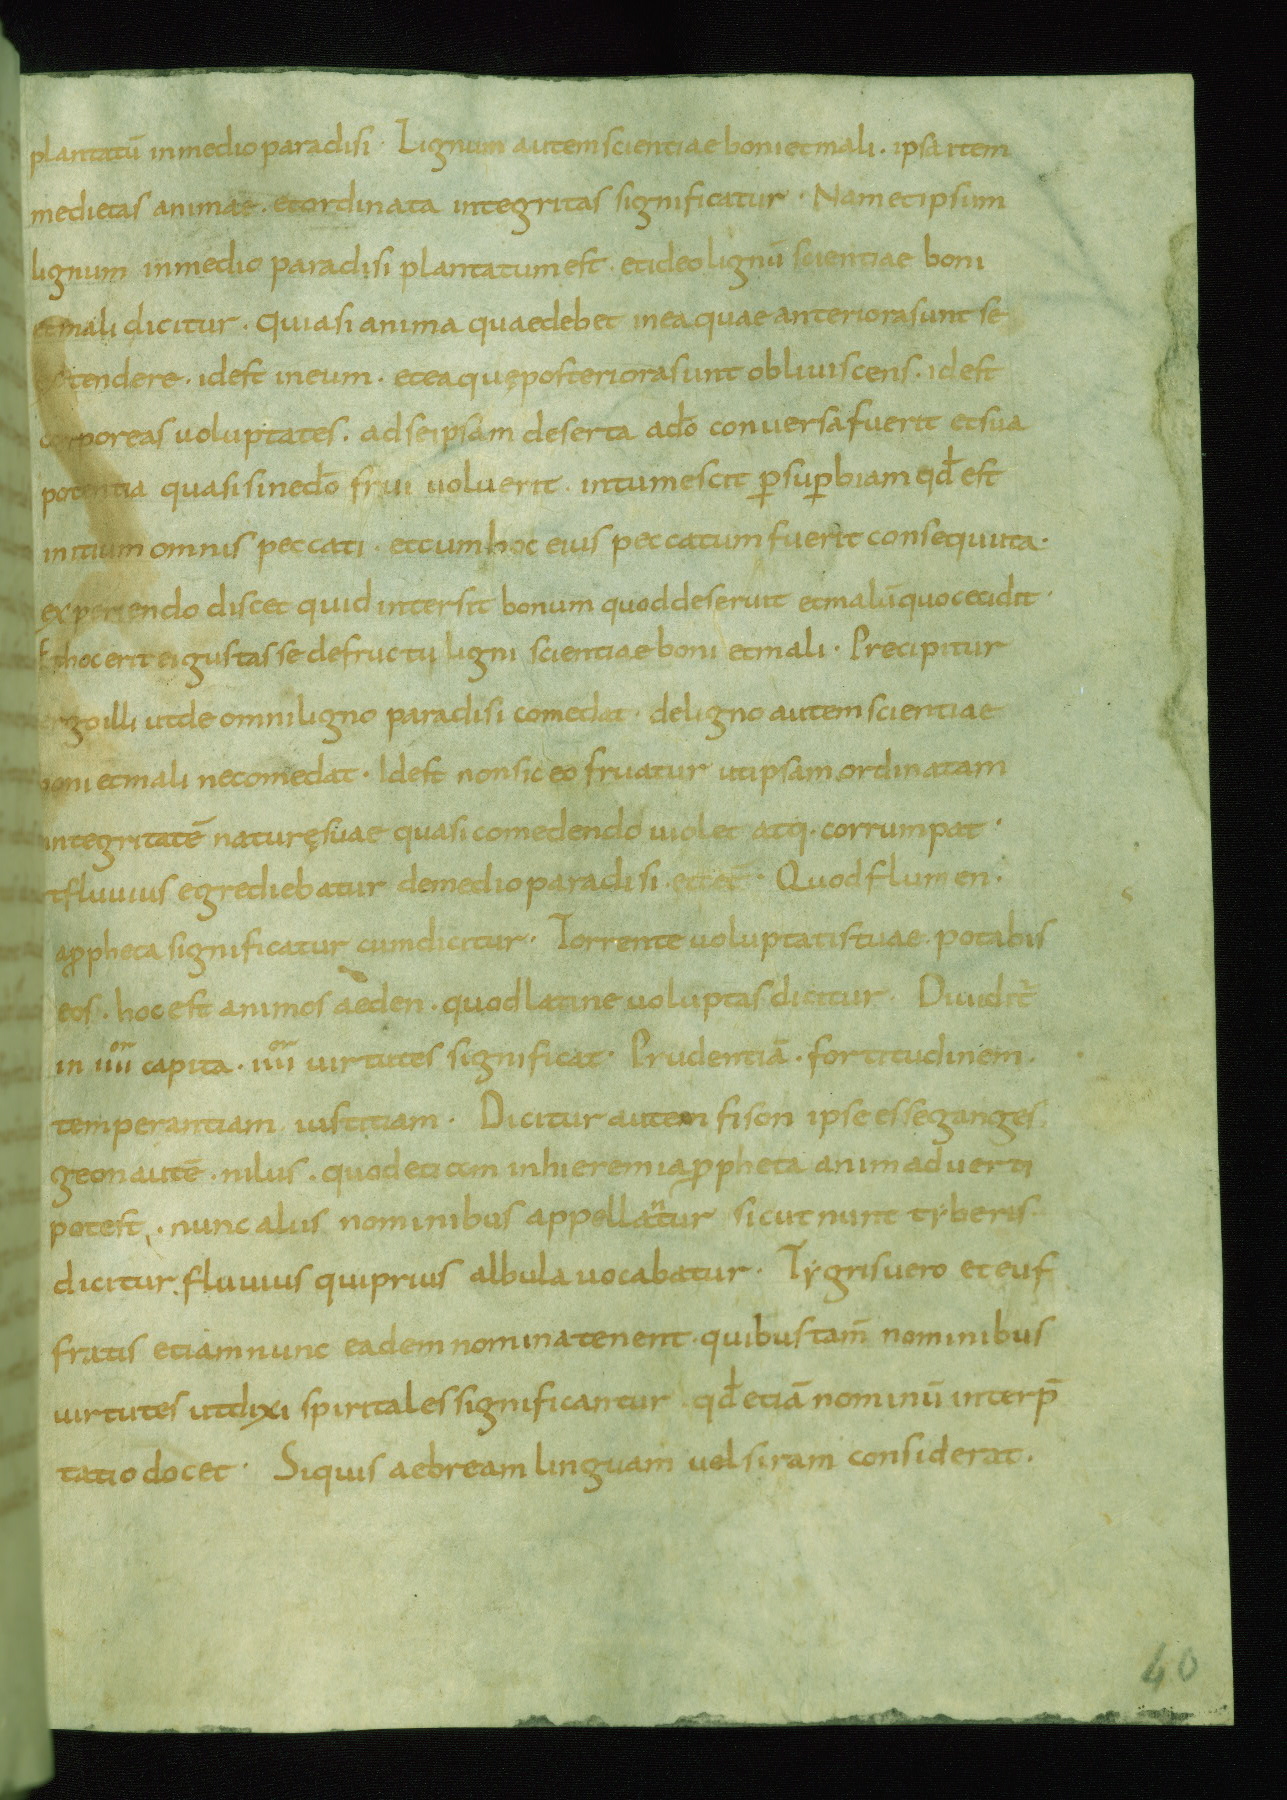 plantatū inmedio paradisi · Lignum autem scientiae boni et mali · ipsa item
medietas animae · et ordinata integritas significatur · Nam et ipsum
lignum inmedio paradisi plantatum est · et ideo lignū scientiae boni
et mali dicitur · Quia si anima quae debet in ea quae anteriora sunt se
extendere · id est in eum · et ea quę posteriora sunt obliuiscens · id est
corporeas uoluptates · ad seipsam deserta adō conuersa fuerit et sua
potentia quasi sinedō frui uoluerit · intumescit ꝑ suꝑbiam qđ est
initium omnis peccati · et cum hoc eius peccatum fuerit consequuta ·
experiendo discet quid intersit bonum quod deseruit et malū quo cecidit ·
Et hoc erit ei gustasse de fructu ligni scientiae boni et mali · Precipitur
ergo illi ut de omni ligno paradisi comedat · de ligno autem scientiae
boni et mali ne comedat · Id est non sic eo fruatur ut ipsam ordinatam
integritatē naturę suae quasi comedendo uiolet atq · corrumpat ·
et fluuius egrediebatur de medio paradisi et cet̄ · Quod flumen ·
a ꝓpheta significatur cum dicitur · Torrente uoluptatis tuae · potabis
eos · hoc est animos aeden · quod latine uoluptas dicitur · Diuidit̄
in iiii or capita · iiii or uirtutes significat · Prudentiā · fortitudinem ·
temperantiam iustitiam · Dicitur autem fison ipse esse ganges
geon autē · nilus · quod etiam in hieremia ꝓpheta animaduerti
potest · nunc aliis nominibus appellantur sicut nunc tyberis
dicitur fluuius qui prius albula uocabatur · Tygris uero et euf
fratis etiam nunc eadem nomina tenent · quibus tam̄ nominibus
uirtutes ut dixi spiritales significantur · qđ etiā nominū interp̄
tatio docet · Siquis aebream linguam uel siram considerat ·
40